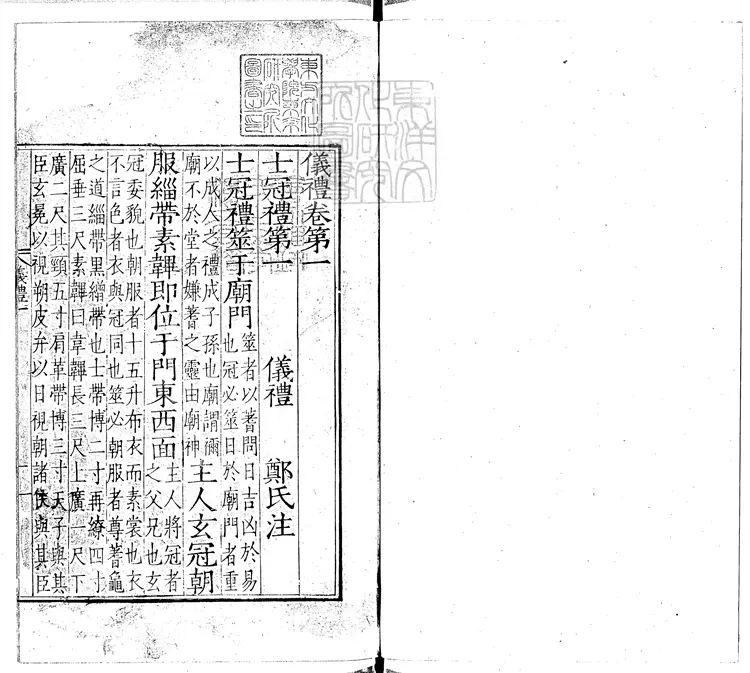 東方文化學院東京研究所圖書之印
東洋文化研究所圖書
儀禮卷第一
士冠禮第一 儀禮 鄭氏注
士冠禮筮于廟門 筮者以蓍問日吉凶於易
也冠必筮日於廟門者重
以成人之禮成子孫也廟謂禰
廟不於堂者嫌蓍之靈由廟神 主人玄冠朝
服緇帶素韠即位于門東西面 主人將冠者
之父兄也玄
冠委貌也朝服者十五升布衣而素裳也衣
不言色者衣與冠同也筮必朝服者尊蓍龜
之道緇帶黑繒帶也士帶博二寸再繚四寸
屈垂三尺素韠白韋韠長三尺上廣一尺下
廣二尺其頸五寸肩革帶博三寸天子與其
臣玄冕以視朔皮弁以日視朝諸侯與其臣
儀禮一
一